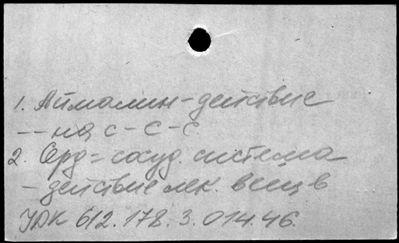 1. Аймалин-действие
-- на с-с-с
2. Срд=сосуд. система
- действие лек. веществ
УДК 612.178.3.014.46.